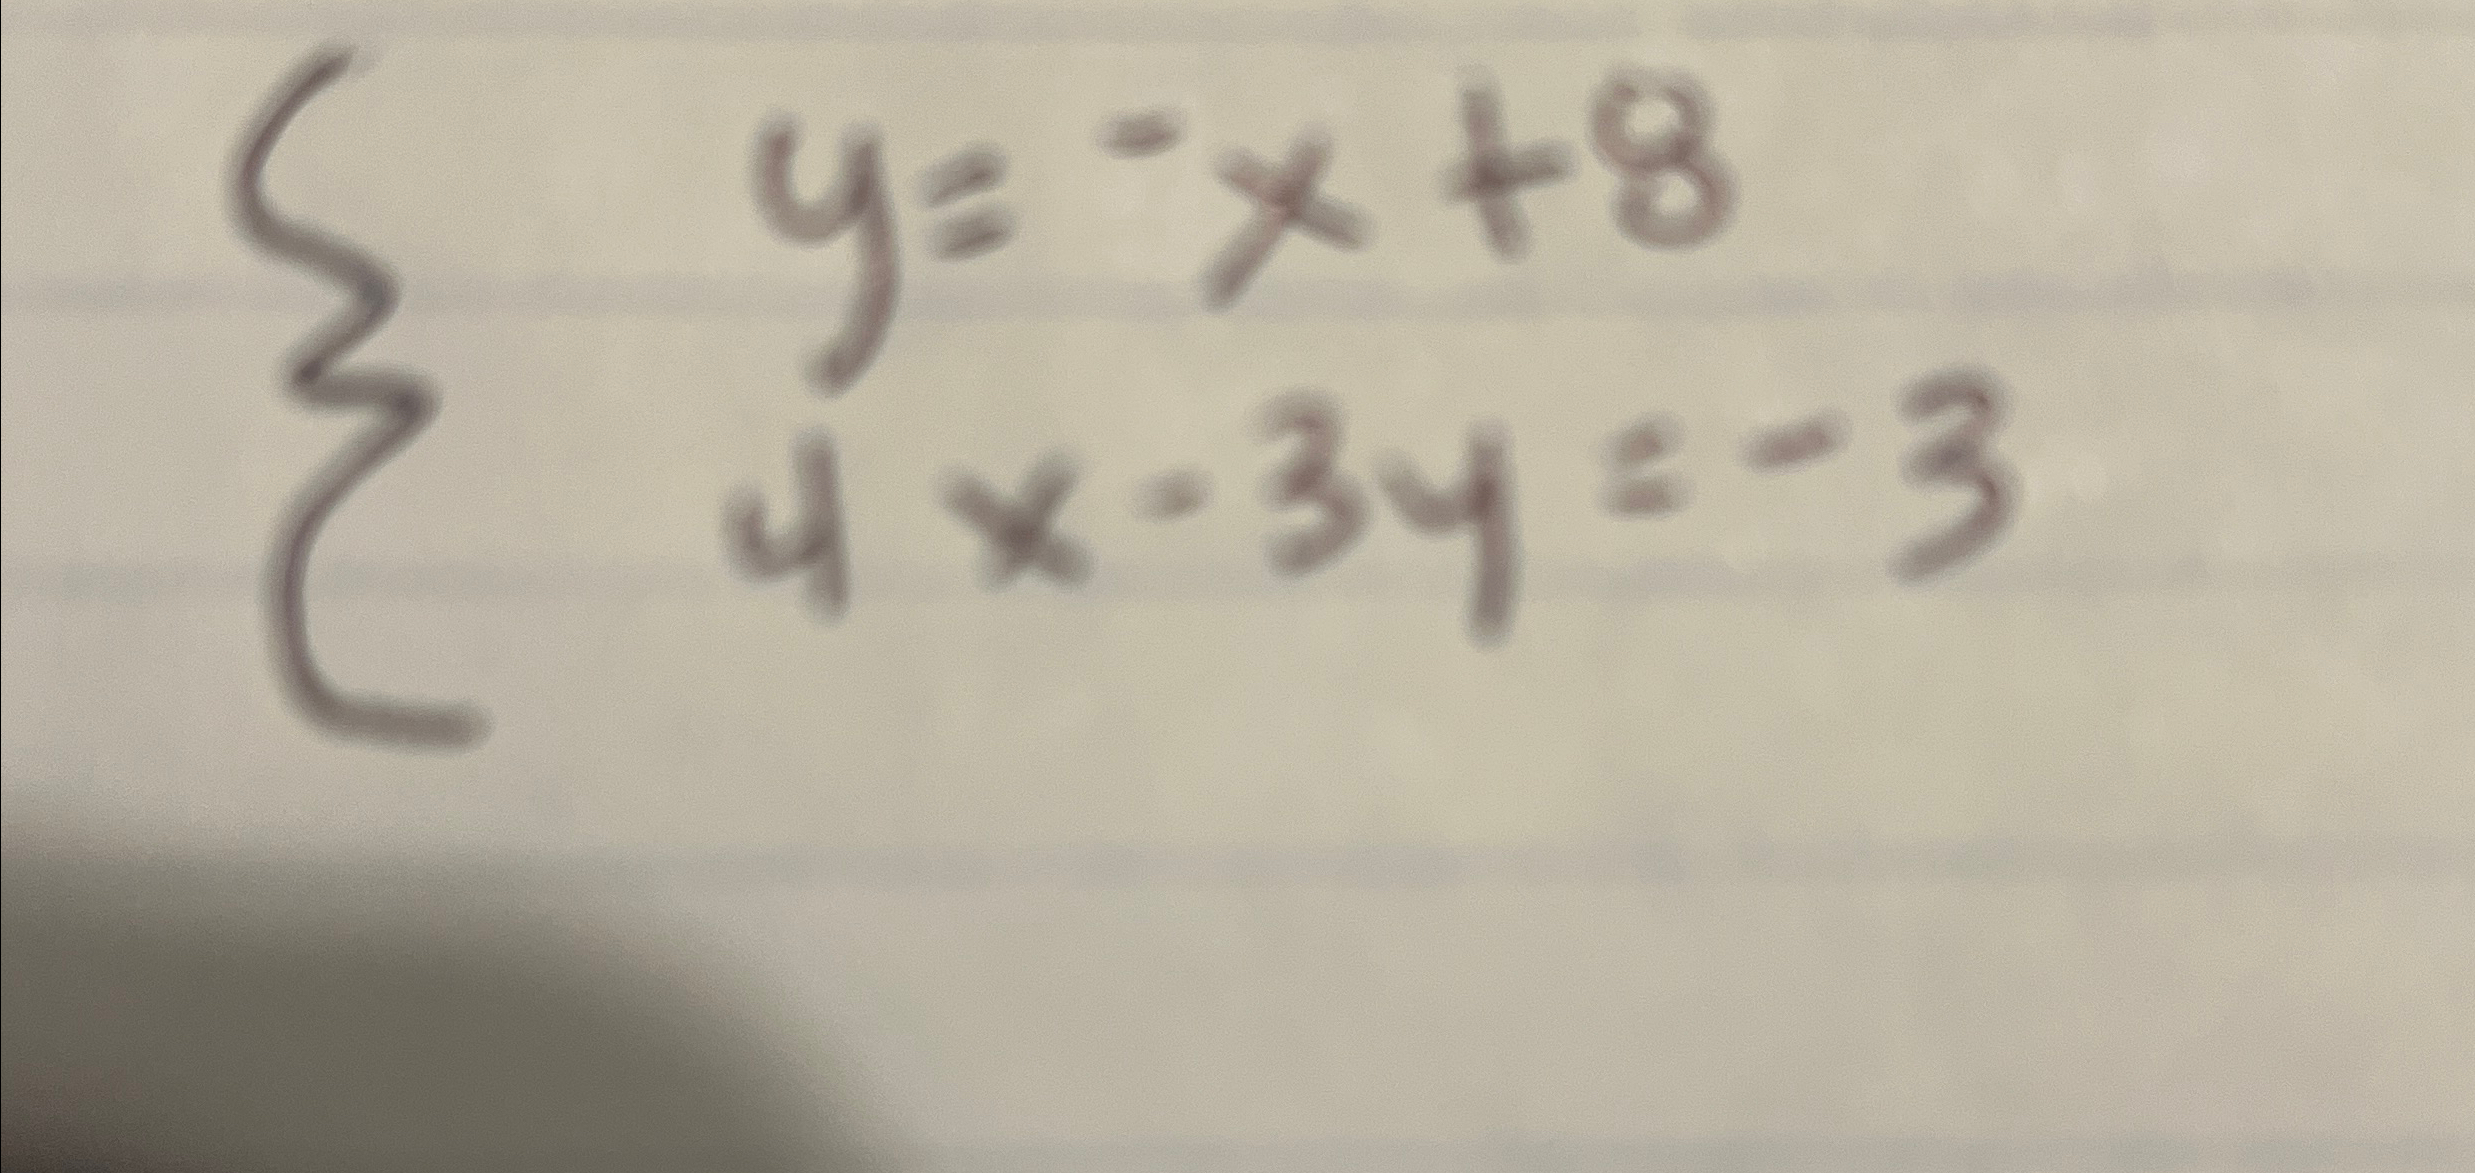 y = -x + 8
4x - 3y = -3